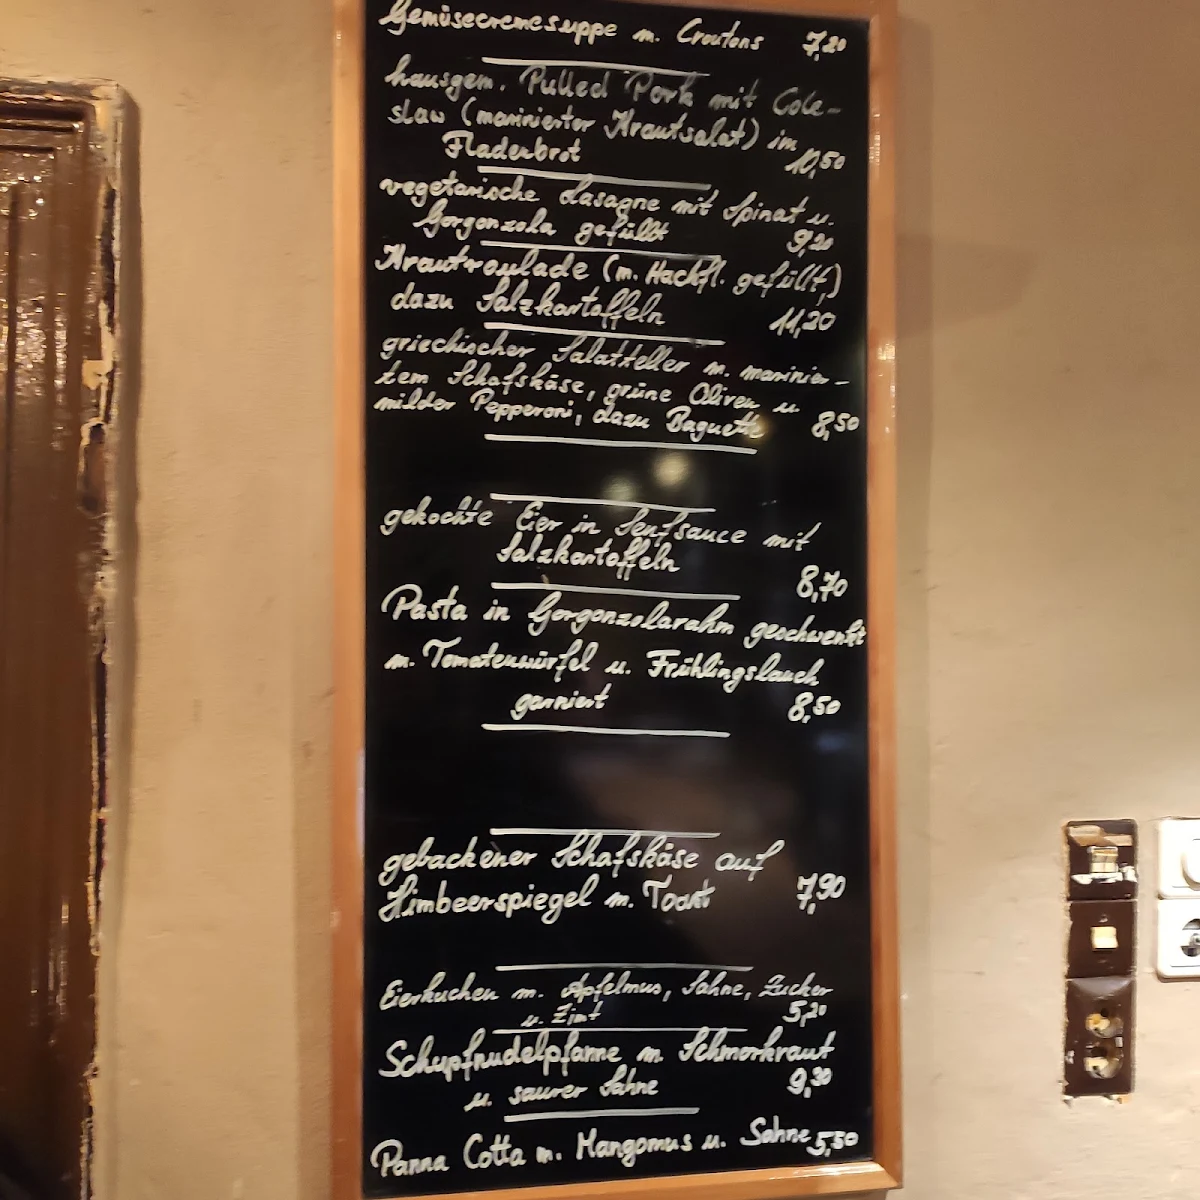 Gemüsecremesuppe m. Croutons 7,20
hausgem. Pulled Pork mit Cole-
slaw (marinierter Krautsalat) im
Fladenbrot 10,50
vegetarische Lasagne mit Spinat u.
Gorgonzola gefüllt 9,20
Krautroulade (m. Hackfl. gefüllt,)
dazu Salzkartoffeln 11,20
griechischer Salatteller m. marinier-
tem Schafskäse, grüne Oliven u.
milder Pepperoni, dazu Baguette 8,50
gekochte Eier in Senfsauce mit
Salzkartoffeln 8,70
Pasta in Gorgonzolarahm geschwenkt
m. Tomatenwürfel u. Frühlingslauch
garniert 8,50
gebackener Schafskäse auf
Himbeerspiegel m. Toast 7,90
Eierkuchen m. Apfelmus, Sahne, Zucker
u. Zimt 5,20
Schupfnudelpfanne m. Schmorkraut
u. saurer Sahne 9,30
Panna Cotta m. Mangomus u. Sahne 5,50